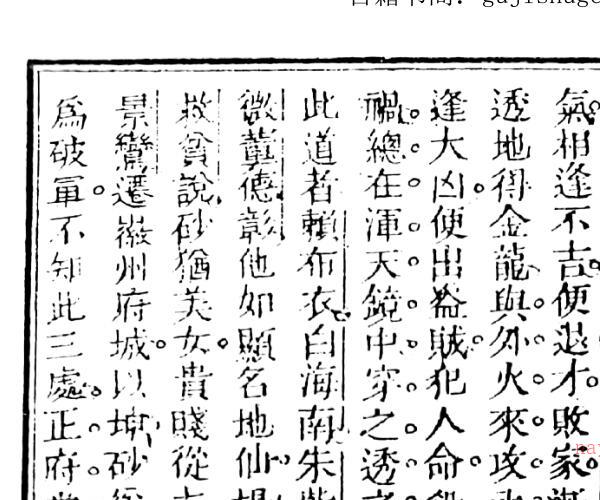 氣相逢不吉便退才敗家
透地得金龍與外火來攻
逢大凶便出盜賊犯人命
禍總在渾天鏡中穿之透
此道者賴布衣白海南朱
微董德彰他如顯名地仙
救貧說砂猶美女貴賤從
景鸞遷徽州府城以坤砂
為破軍不知此三處正府